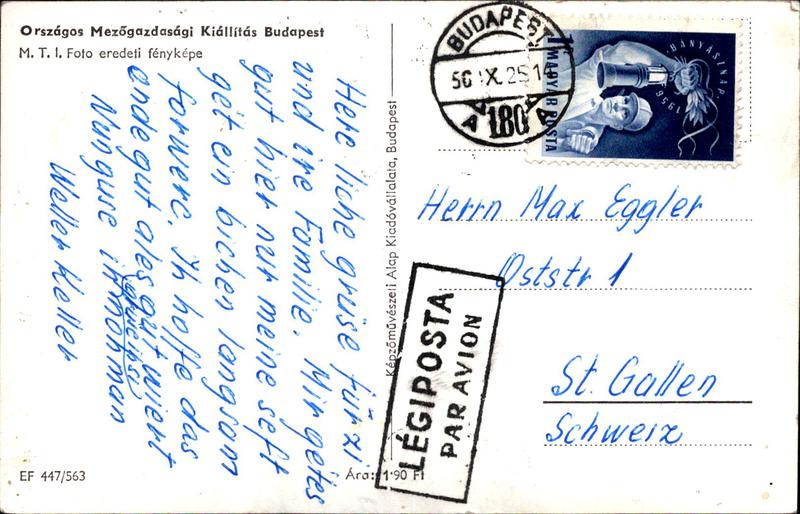 Országos Mezőgazdasági Kiállítás Budapest
M. T. I. Foto eredeti fényképe
Here liche grüse für zi
und ire Familie. Mir getes
gut hier nur meine seft
get ein bichen langsam
forwerc. Ih hoffe das
ende gut ales güt wiert
Weller Keller
EF 447/563
Ára: 1·90 Ft
Képzőművészeti Alap Kiadóvállalata, Budapest
BUDAPEST
56 IX. 25 14
180
MAGYAR POSTA
BÁNYÁSZNAP
1956
Herrn Max Eggler
Oststr 1
St. Gallen
Schweiz
LÉGIPOSTA
PAR AVION